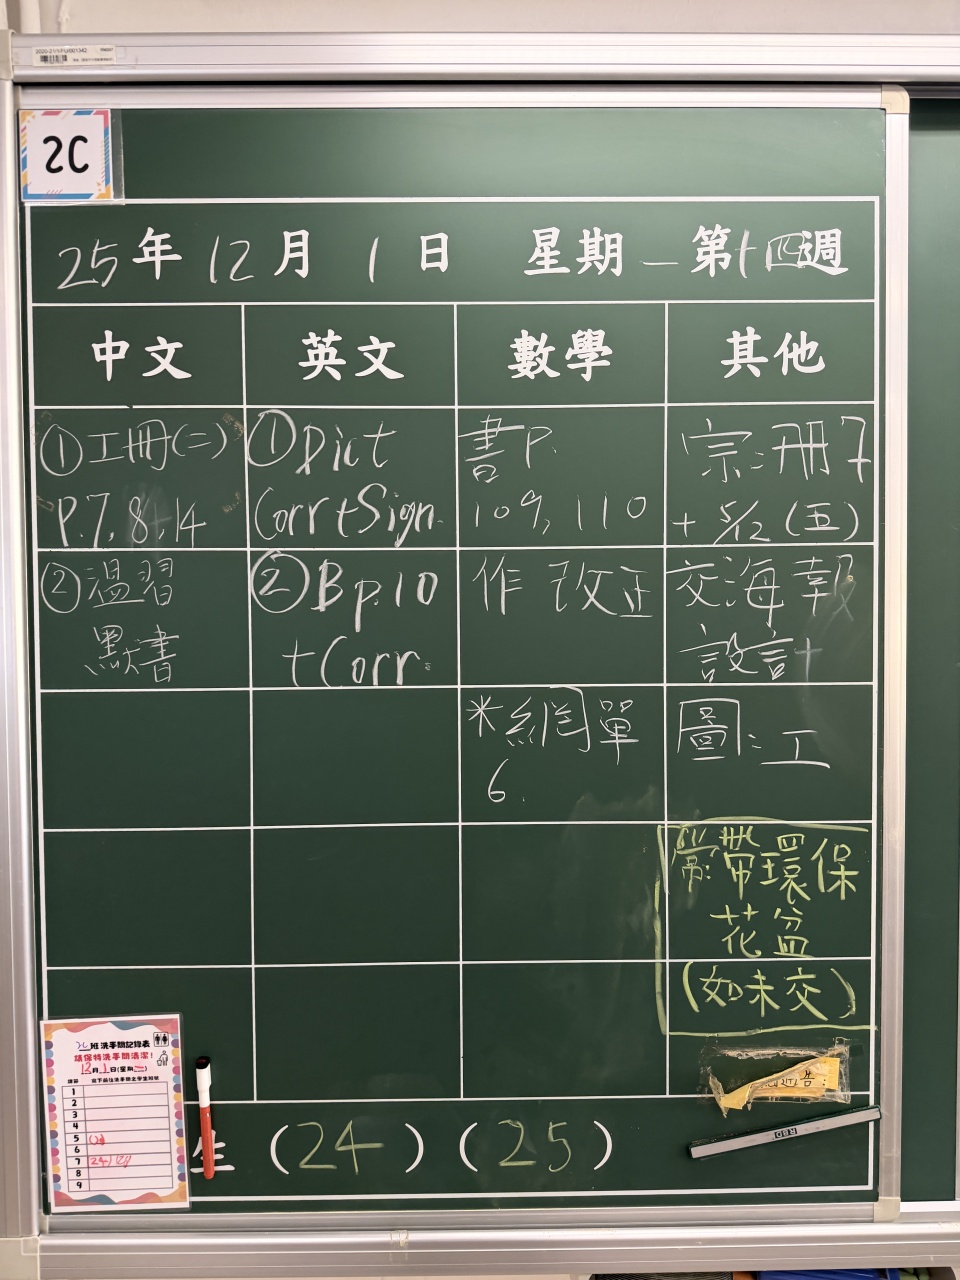 2C
25年 12月 1日 星期一 第十四週
中文 英文 數學 其他
①工冊(二)
P.7, 8, 14
①Dict
Corr+Sign.
書P.
109, 110
宗:冊7
+ 5/12 (五)
②溫習
默書
②B p.10
+Corr.
作 改正
交海報
設計
*網單
6.
圖:工
常:帶環保
花盆
(如未交)
生 (24) (25)
班洗手間記錄表
請保持洗手間清潔!
12月1日(星期一)
1
2
3
4
5
6
7
8
9
告: